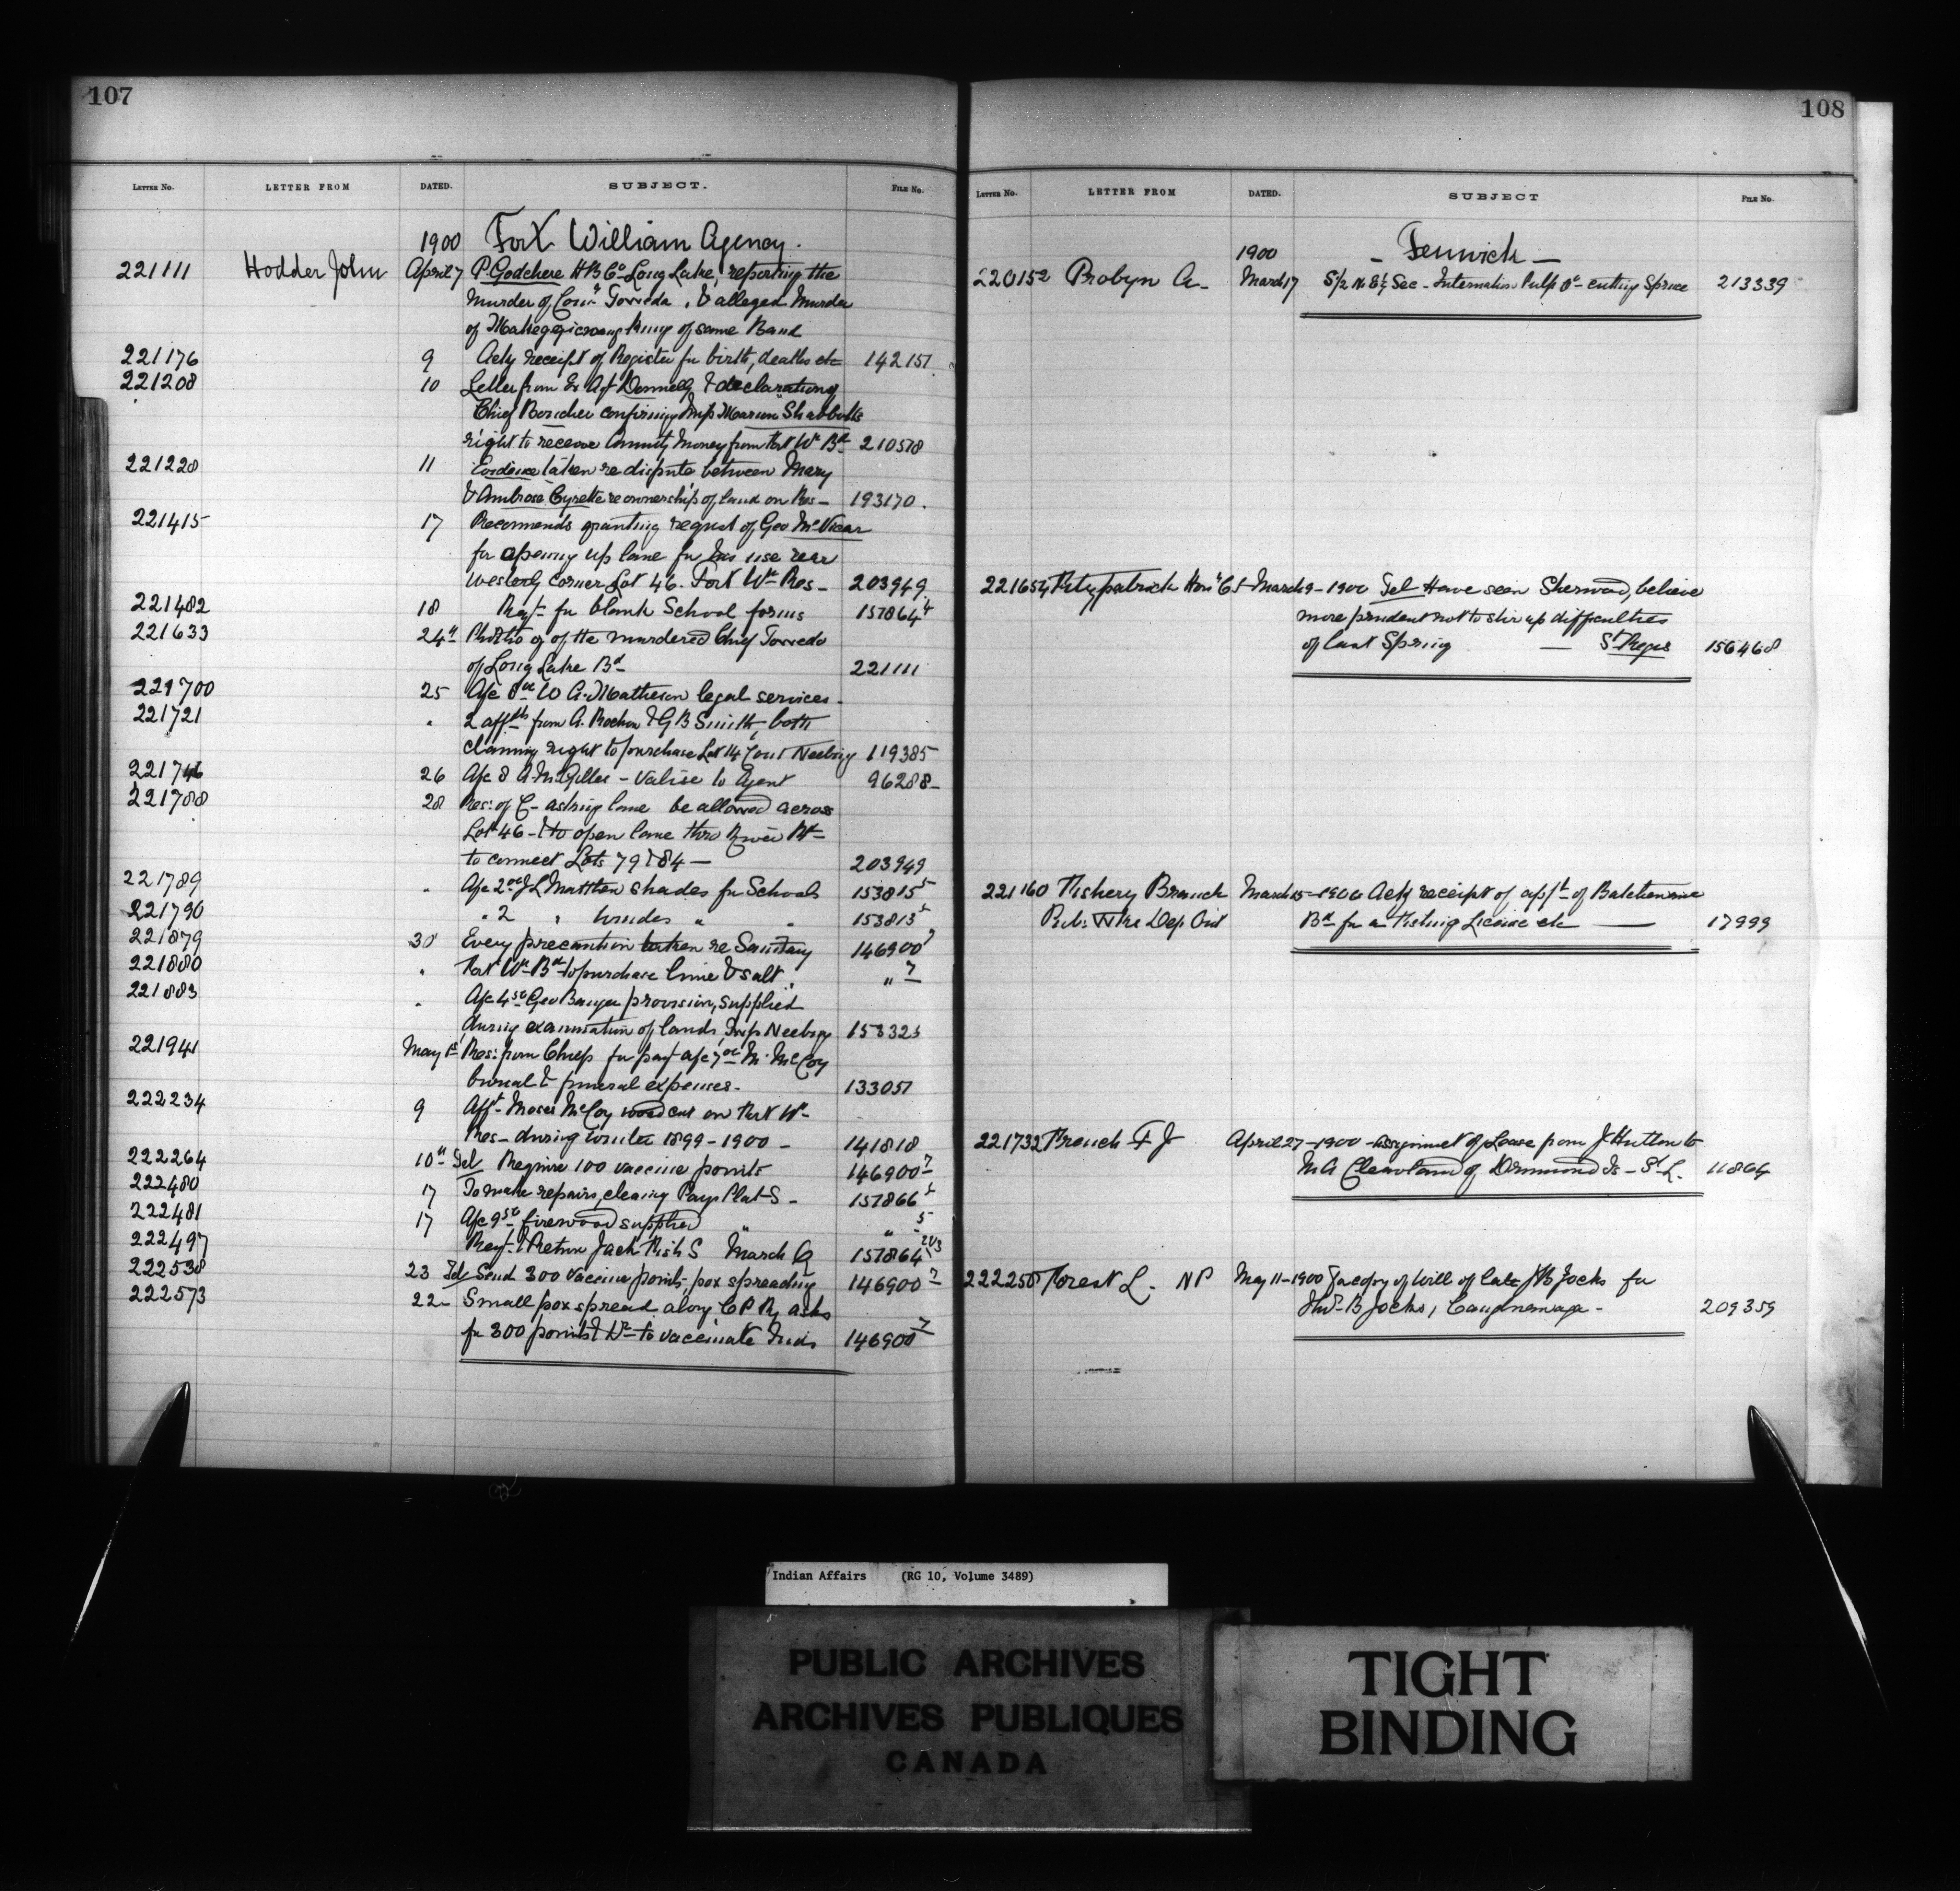 107
LETTER No. LETTER FROM DATED. SUBJECT. FILE No.
1900 Fort William Agency.
221111 Hodder John April 7 P. Godchere H B Co Long Lake, reporting the
murder of Towedo, & alleged Murder
of same Band
221176 9 Ackg receipt of Register for birth, deaths etc 142151
221208 10 Letter from Ex Agt Donnelly & declaration of
Chief Boucher confirming
right to receive Annuity Money from Fort Wm Bd 210578
221228 11 Evidence taken re dispute between Mary
& Ambrose Cyrette re ownership of land on Res- 193170.
221415 17 Recommends granting request of Geo McVicar
for opening up lane for his use rear
westerly corner Lot 46. Fort Wm Res- 203949
221482 18 Reqt for blank School forms 157864 4
221633 24th Photo of the murdered Chief Towedo
of Long Lake Bd 221111
221700 25 A/c W A. Matheson legal services.
221721 " 2 affts from A. Rochon & G B Smith, both
claiming right to purchase Lot 14 Con 1 Neebing 119385
221746 26 A/c A. McGilles - Valise to Agent 96288-
221788 28 Res: of C- asking lane be allowed across
Lot 46 - & to open lane thro River Rd
to connect Lots 79 & 84 — 203949
221789 " A/c 2 J L Matthew shades for Schools 153815 5
221790 " 2 " " " 153815 5
221879 30 Every precaution taken re Sanitary 146900 7
221880 " Fort Wm Bd to purchase lime & salt. " 7
221883 " A/c 4 Geo provisions, supplied
during examination of lands, Twp Neebing 153323
221941 May 1st Res: from Chiefs for pay A/c 7 M. McCoy
burial & funeral expenses- 133051
222234 9 Afft- Moses McCoy wood cut on Fort Wm
Res- during winter 1899-1900 - 141818
222264 10th Tel Require 100 vaccine points 146900 7
222480 17 To make repairs, cleaning Pays Plat S- 157866 5
222481 17 A/c 9 firewood supplied " " 5
222497 Reqt & Return Jack Fish S March Q 157864 2&3
222538 23 Tel Send 300 Vaccine points, pox spreading 146900 7
222573 22- Small pox spread along C P R, asks
for 300 points & Dr- to vaccinate Inds 146900 7
108
LETTER No. LETTER FROM DATED. SUBJECT FILE No.
1900 - Fenwick -
220152 Probyn A- March 17 S1/2 N E1/4 Sec - Internation Pulp Co- cutting Spruce 213339
221654 Fitzpatrick Hon C March 9 - 1900 Tel Have seen Sherwood, believe
more prudent not to stir up difficulties
of last Spring — St Regis 156468
221160 Fishery Branch March 15-1900 Ackg receipt of appt of Batchewana
Pub: Wks Dep Ont Bd for a Fishing License etc — 17999
221732 French F J April 27-1900 - Assignment of Lease from J Hutton to
M A Cleveland of Drummond Is - St L. 11864
222250 Forest L. N P May 11-1900 copy of Will of late Jocks for
B Jocks, Caughnawaga - 209359
Indian Affairs (RG 10, Volume 3489)
PUBLIC ARCHIVES
ARCHIVES PUBLIQUES
CANADA
TIGHT
BINDING